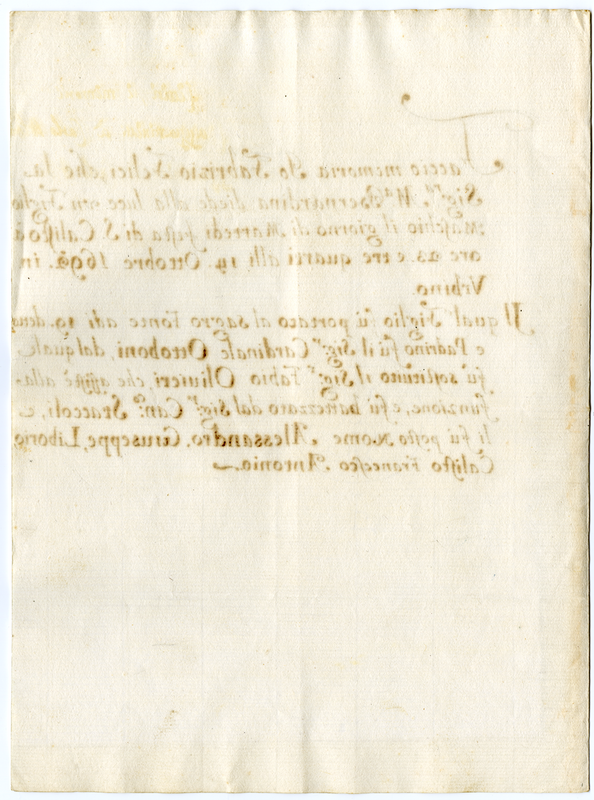 Faccio memoria Io Fabrizio Felici, che la
Sig.ra M.a Bernardina diede alla luce un Figlio
Maschio il giorno di Martedi festa di S. Calisto à
ore 23. e tre quarti alli 14. Ottobre 1692. in
Urbino.
Il qual Figlio fù portato al sagro Fonte adi 19. detto
e Padrino fù il Sig.r Cardinale Ottoboni, dal quale
fù sostituito il Sig.r Fabio Olivieri, che assistè alla
funzione, e fù battezzato dal Sig.r Can.co Staccoli, e
li fù posto Nome Alessandro, Giuseppe, Liborio,
Calisto Francesco Antonio.